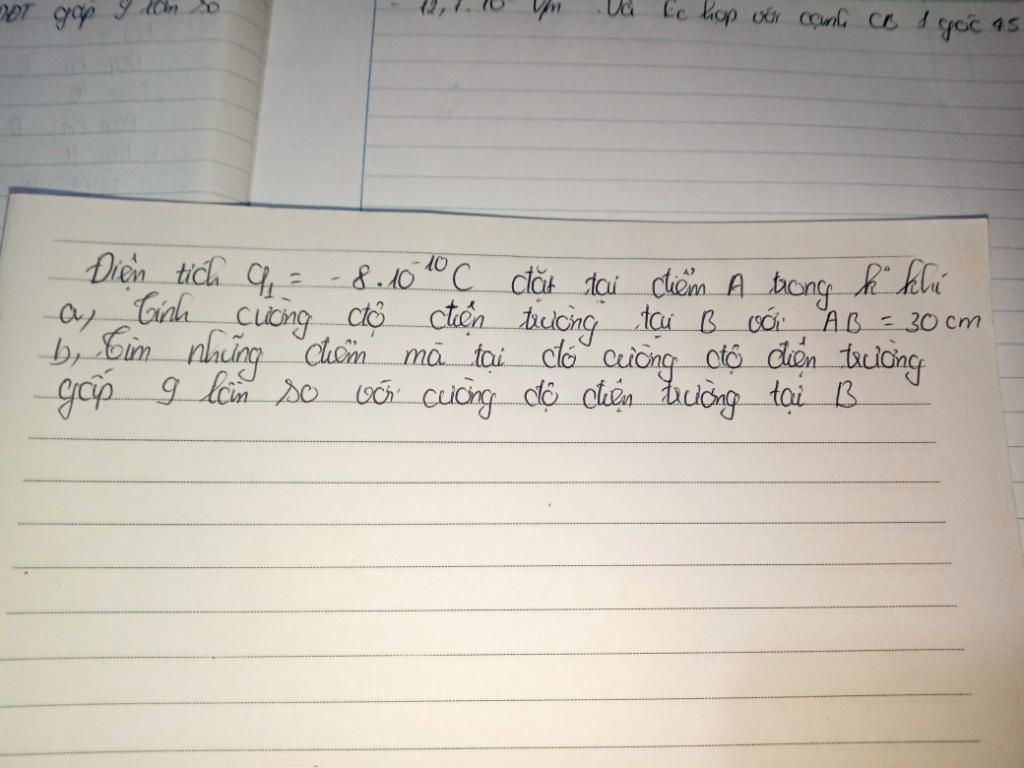 ĐĐT gấp 9 lần so
= 12,7.10 V/m Và Ec hợp với cạnh CB 1 góc 45
Điện tích q₁ = -8.10⁻¹⁰ C đặt tại điểm A trong k° khí
a, Tính cường độ điện trường tại B với AB = 30 cm
b, Tìm những điểm mà tại đó cường độ điện trường
gấp 9 lần so với cường độ điện trường tại B